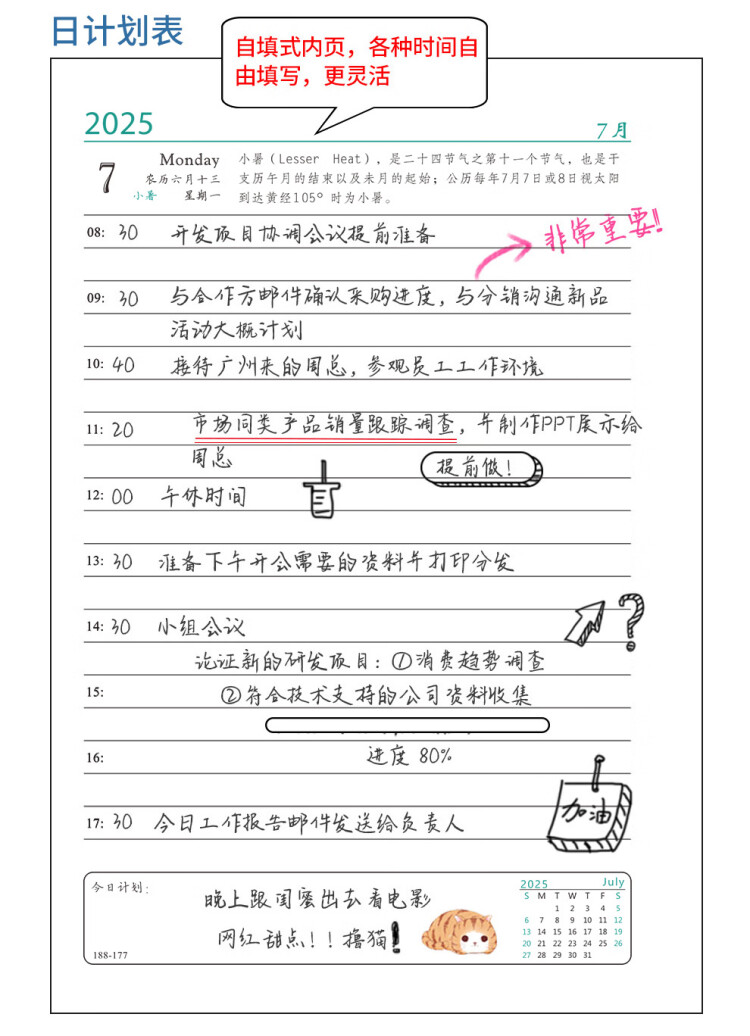 日计划表
自填式内页，各种时间自
由填写，更灵活
2025
7月
7
Monday
农历六月十三
小暑 星期一
小暑（Lesser Heat），是二十四节气之第十一个节气，也是干
支历午月的结束以及未月的起始；公历每年7月7日或8日视太阳
到达黄经105°时为小暑。
08: 30 开发项目协调会议提前准备
非常重要!!
09: 30 与合作方邮件确认采购进度，与分销沟通新品
活动大概计划
10: 40 接待广州来的周总，参观员工工作环境
11: 20 市场同类产品销量跟踪调查，并制作PPT展示给
周总
提前做！
12: 00 午休时间
13: 30 准备下午开会需要的资料并打印分发
14: 30 小组会议
?
论证新的研发项目：①消费趋势调查
15: ②符合技术支持的公司资料收集
16: 进度 80%
加油
17: 30 今日工作报告邮件发送给负责人
今日计划：
晚上跟闺蜜出去看电影
网红甜点！！撸猫！
188-177
2025 July
S M T W T F S
1 2 3 4 5
6 7 8 9 10 11 12
13 14 15 16 17 18 19
20 21 22 23 24 25 26
27 28 29 30 31